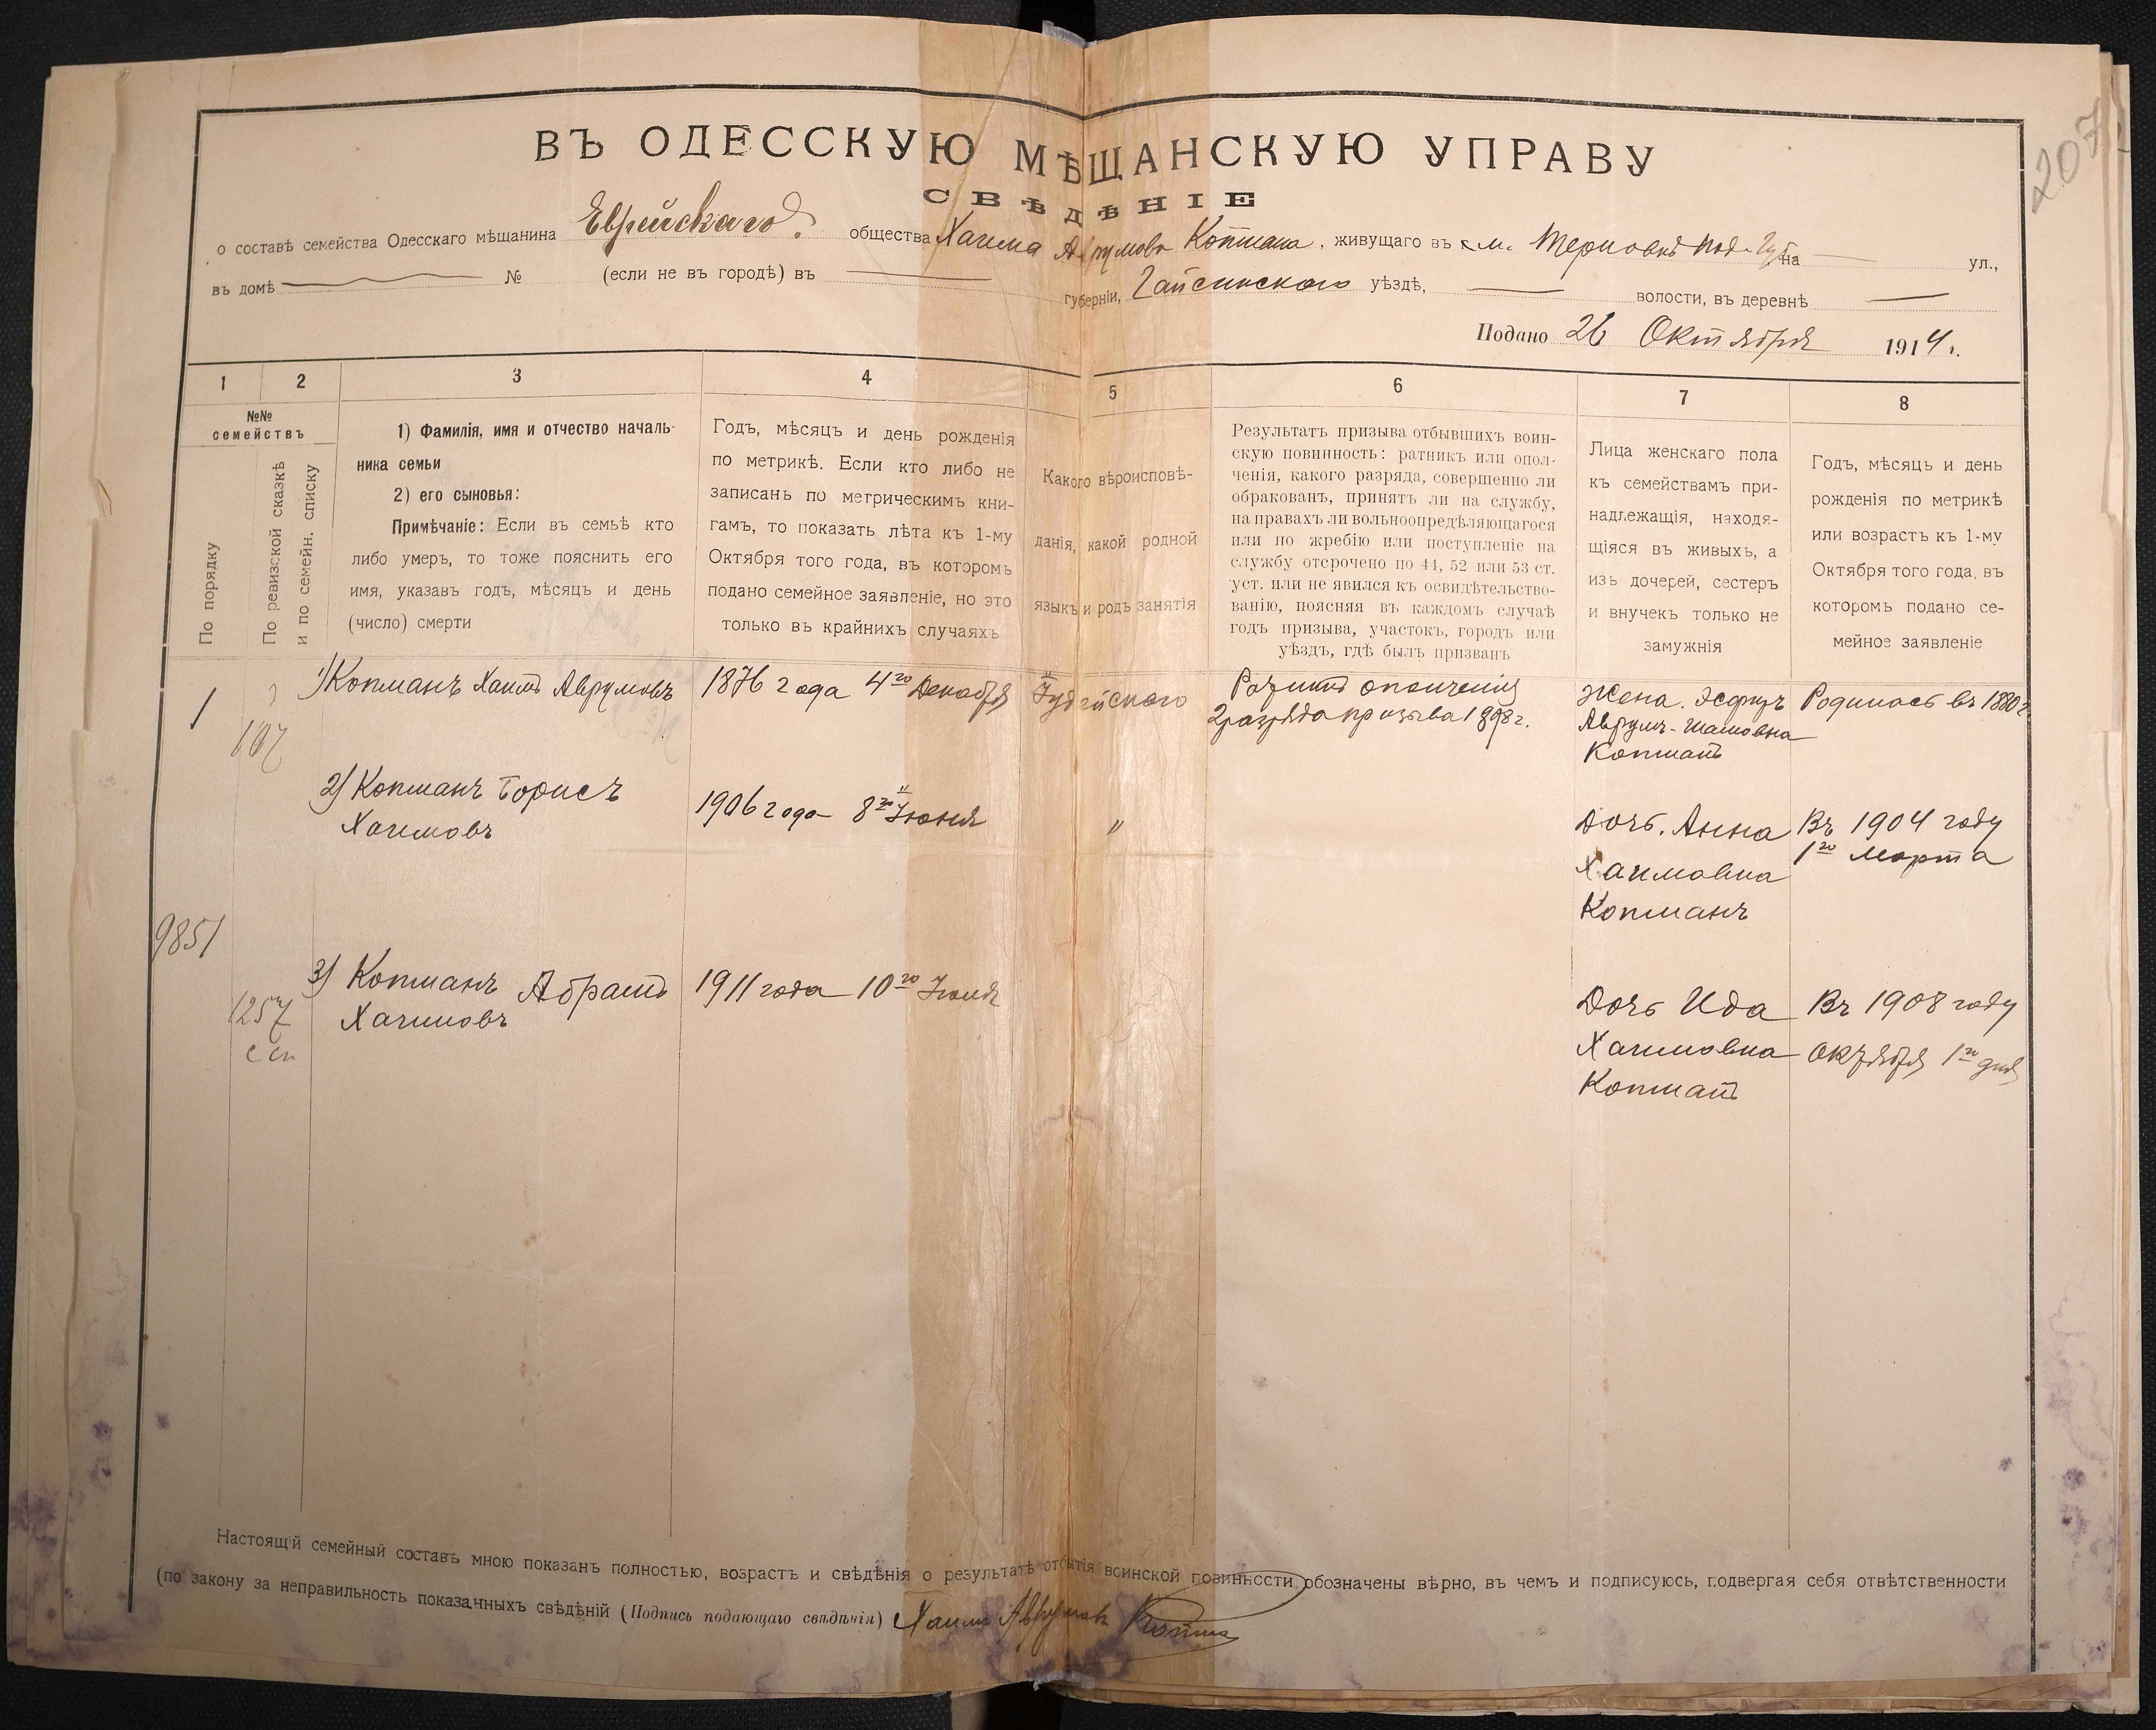 207
ВЪ ОДЕССКУЮ МѢЩАНСКУЮ УПРАВУ
СВѢДѢНІЕ
о составѣ семейства Одесскаго мѣщанина Еврейскаго общества Хаима Аврумова Копмана, живущаго въ м. Терновкѣ Под. Губ. на ул.,
въ домѣ № (если не въ городѣ) въ губерніи, Гайсинскаго уѣздѣ, волости, въ деревнѣ
Подано 26 Октября 1914 г.
1 2 3 4 5 6 7 8
№№
семействъ
По порядку
По ревизской сказкѣ
и по семейн. списку
1) Фамилія, имя и отчество началь-
ника семьи
2) его сыновья:
Примѣчаніе: Если въ семьѣ кто
либо умеръ, то тоже пояснить его
имя, указавъ годъ, мѣсяцъ и день
(число) смерти
Годъ, мѣсяцъ и день рожденія
по метрикѣ. Если кто либо не
записанъ по метрическимъ кни-
гамъ, то показать лѣта къ 1-му
Октября того года, въ которомъ
подано семейное заявленіе, но это
только въ крайнихъ случаяхъ
Какого вѣроисповѣ-
данія, какой родной
языкъ и родъ занятія
Результатъ призыва отбывшихъ воин-
скую повинность: ратникъ или опол-
ченія, какого разряда, совершенно ли
обракованъ, принятъ ли на службу,
на правахъ ли вольноопредѣляющагося
или по жребію или поступленіе на
службу отсрочено по 44, 52 или 53 ст.
уст. или не явился къ освидѣтельство-
ванію, поясняя въ каждомъ случаѣ
годъ призыва, участокъ, городъ или
уѣздъ, гдѣ былъ призванъ
Лица женскаго пола
къ семействамъ при-
надлежащія, находя-
щіяся въ живыхъ, а
изъ дочерей, сестеръ
и внучекъ только не
замужнія
Годъ, мѣсяцъ и день
рожденія по метрикѣ
или возрастъ къ 1-му
Октября того года, въ
которомъ подано се-
мейное заявленіе
1
107
1) Копманъ Хаимъ Аврумовъ
1876 года 4го Декабря
Іудейскаго
Ратникъ ополченія
2 разряда призыва 1898 г.
Жена. Эсфирь
Аврумъ-
Копманъ
Родилась въ 1880 г
2) Копманъ Борисъ
Хаимовъ
1906 года 8го Іюня
"
Дочь. Анна
Хаимовна
Копманъ
Въ 1904 году
1го Марта
9851
1257
с сп
3) Копманъ Абрамъ
Хаимовъ
1911 года 10го Іюля
Дочь Ида
Хаимовна
Копманъ
Въ 1908 году
октября 1го дня
Настоящій семейный составъ мною показанъ полностью, возрастъ и свѣдѣнія о результатѣ отбытія воинской повинности обозначены вѣрно, въ чемъ и подписуюсь, подвергая себя отвѣтственности
(по закону за неправильность показанныхъ свѣдѣній (Подпись подающаго свѣдѣнія) Хаимъ Аврумовъ Копман